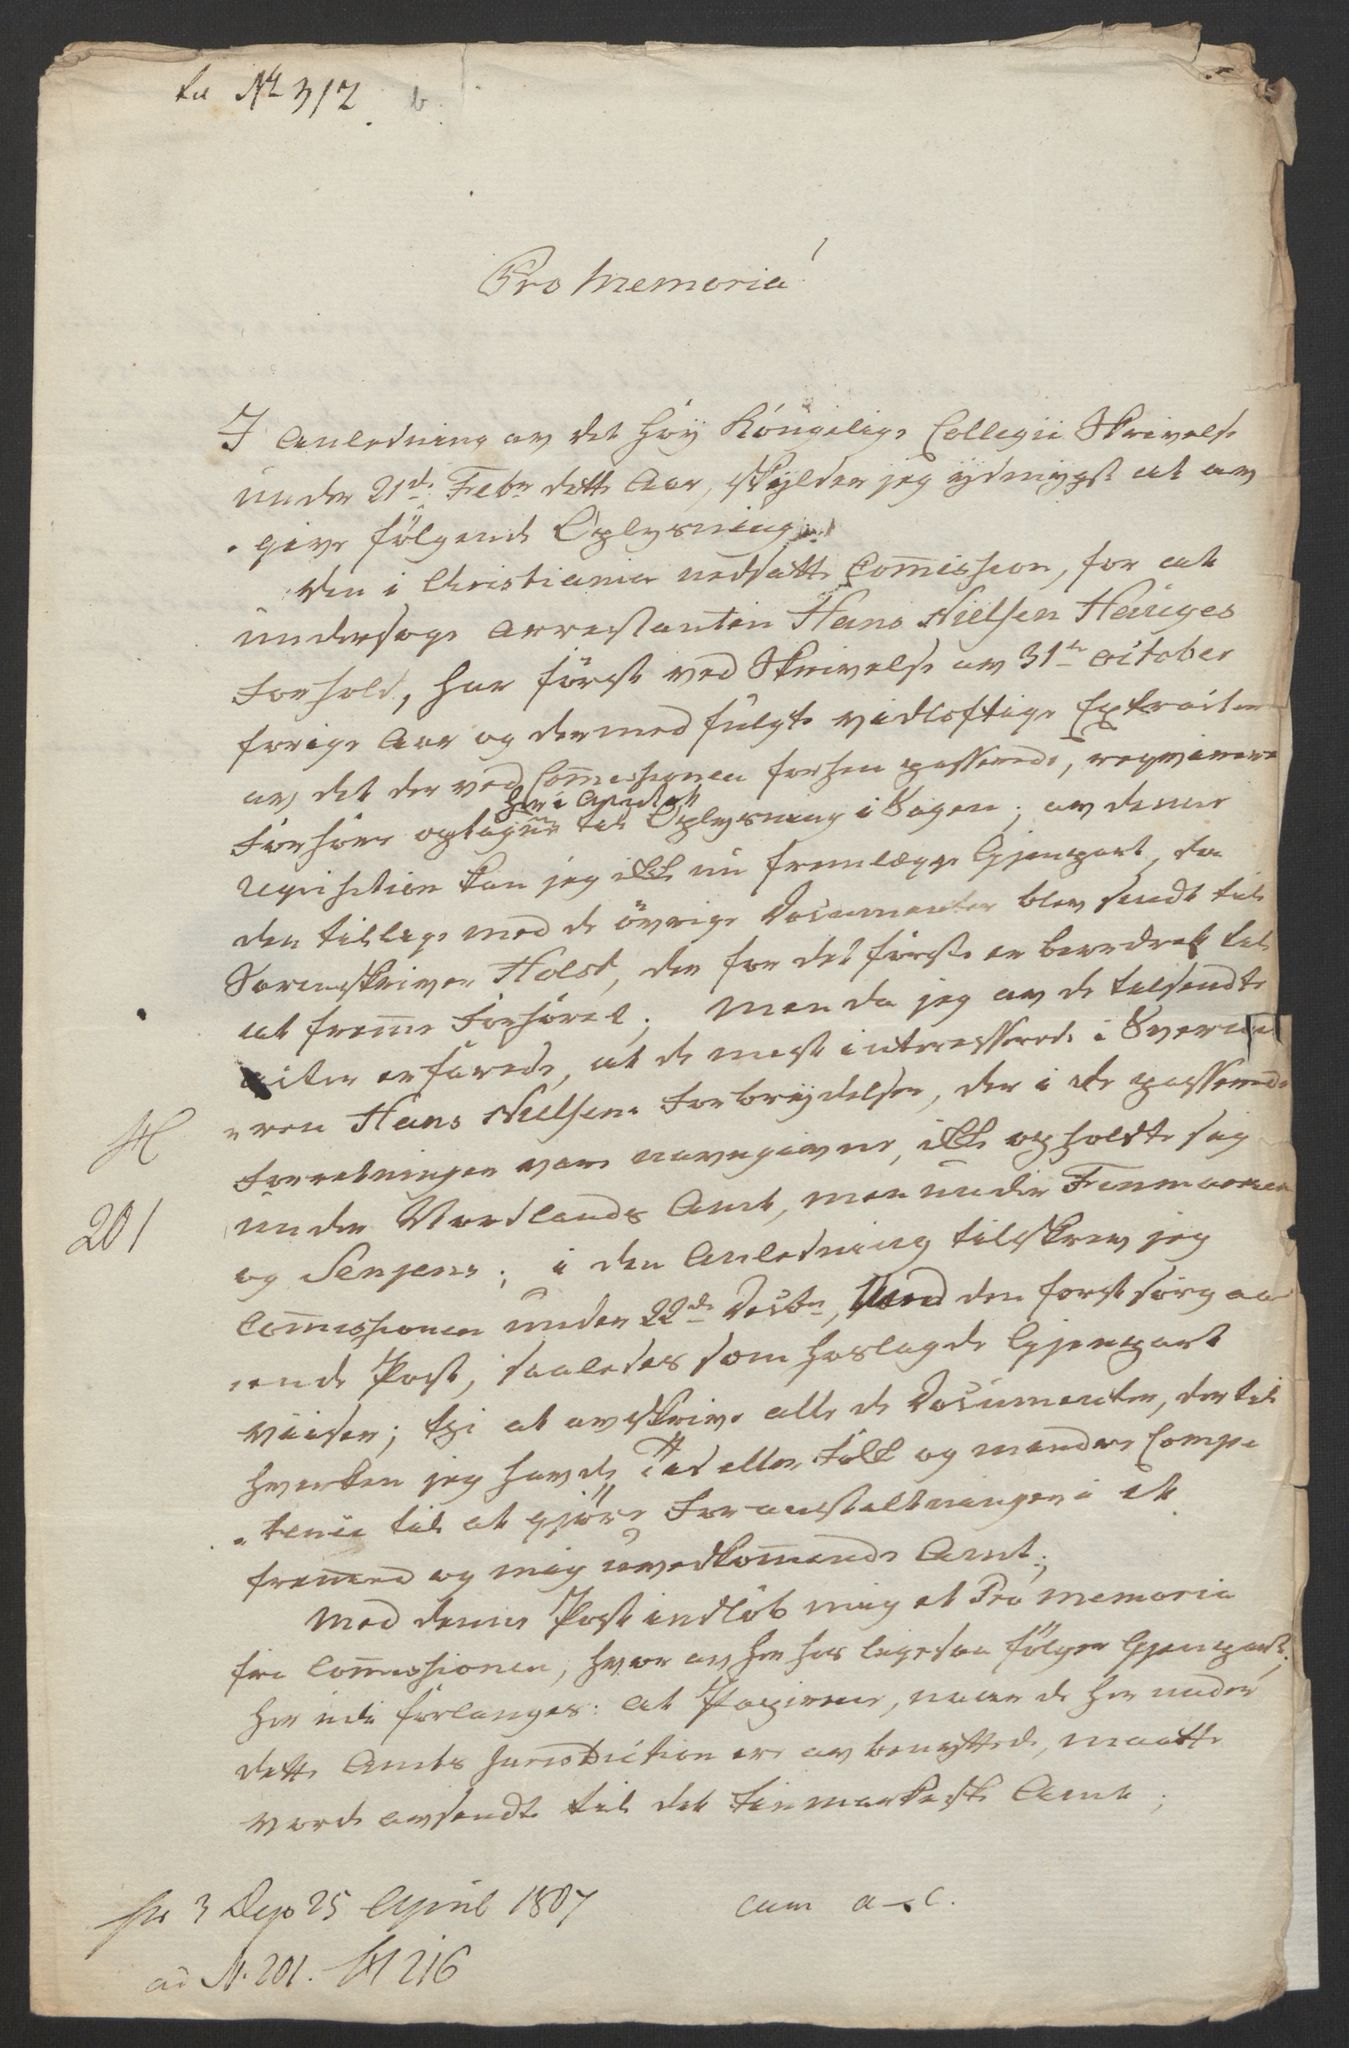 til No 312 b.
Pro Memoria!
I Anledning av det høy Kongelige Collegii Skrivelse
under 21de Febr dette Aar, skylder jeg ydmygst at av
give følgende Oplysning:
Den i Christiania nedsatte Com̅ission, for at
undersøge Arrestanten Hans Nielsen Hauges
Forhold, har først ved Skrivelse av 31te october
forige Aar og dermed fulgte vidløftige Extracter
av det der ved Com̅issionen forhen passerede, reqvireret
her i Amtet
Forhører optagne til Oplysning i Sagen; av denne
reqvisition kan jeg ikke nu fremlægge Gjenpart, da
den tillige med de øvrige Documenter blev sendt til
Sorenskriver Holst, der for det første er beordret til
at frem̅e Forhøret; Men da jeg av de tilsendte
acter erfarede, at de mest interesserede i Sværme
ren Hans Nielsens Forbrydelser, der i de passerede
Forretninger vare navngivne, ikke opholdte sig
under Nordlands Amt, men under Finmarken
og Senjens; i den Anledning tilskrev jeg
Com̅issionen under 22de Decbr, med den først avgaa
ende Post, saaledes som hoslagde Gjenpart
viiser; thi at avskrive alle de Documenter, der til
hverken jeg havde Tid eller Folk og mindre Compe
tence til at gjøre Foranstaltninger i et
frem̅ed og mig uvedkom̅ende Amt;
Med denne Post indløb mig et Pro memoria
fra Com̅issionen, hvor av her hos ligesaa følger Gjenpart;
her udi forlanges: at Papirerne, naar de her under
dette Amts Jurisdiction ere avbenyttede, maatte
vorde avsendte til det Finmarkeske Amt;
H
201
pr 3 Dep 25 April 1807
cum a-c.
ad N. 201. H 216